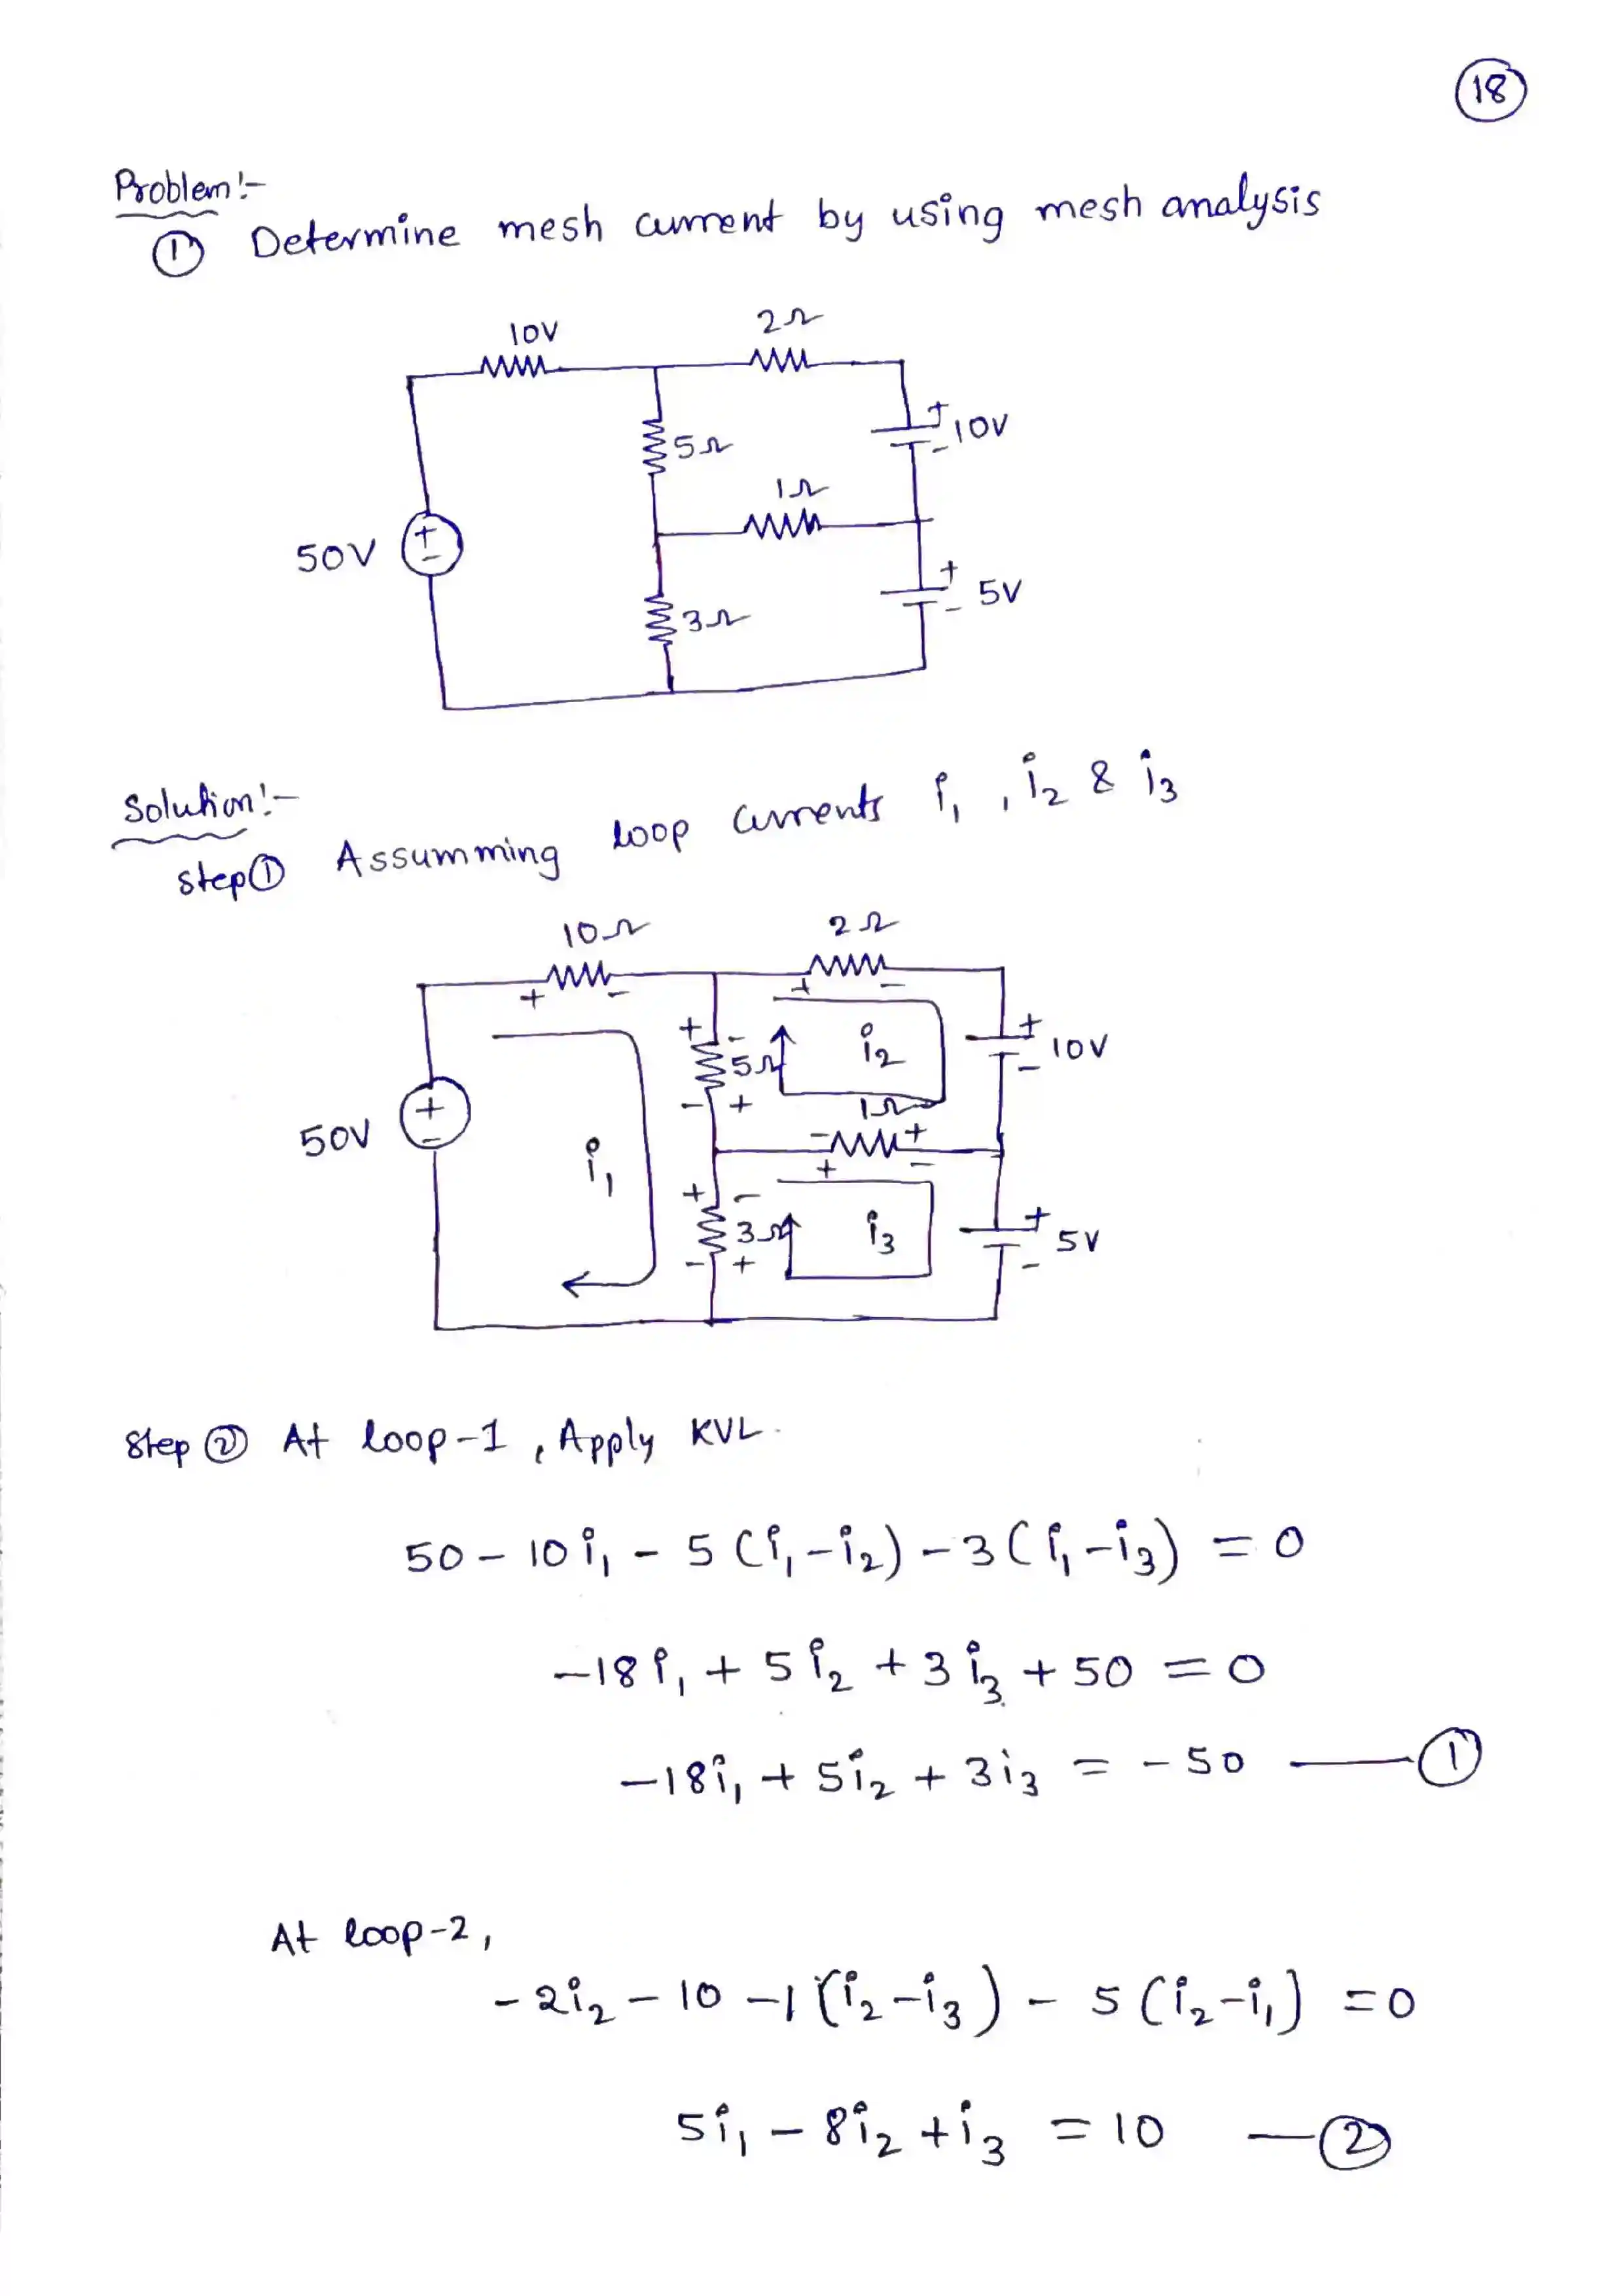 18
Problem:-
① Determine mesh current by using mesh analysis
10V
2Ω
5Ω
+ 10V -
1Ω
50V + -
+ 5V -
3Ω
Solution:-
step① Assumming loop currents i₁, i₂ & i₃
10Ω
2Ω
+ - + -
+ - 5Ω - +
i₂
+ 10V -
1Ω
50V + -
- +
+ -
i₁
+ - 3Ω - +
i₃
+ 5V -
Step ② At loop-1, Apply KVL.
50 - 10i₁ - 5(i₁-i₂) - 3(i₁-i₃) = 0
-18i₁ + 5i₂ + 3i₃ + 50 = 0
-18i₁ + 5i₂ + 3i₃ = -50 — ①
At loop-2,
-2i₂ - 10 - 1(i₂-i₃) - 5(i₂-i₁) = 0
5i₁ - 8i₂ + i₃ = 10 — ②